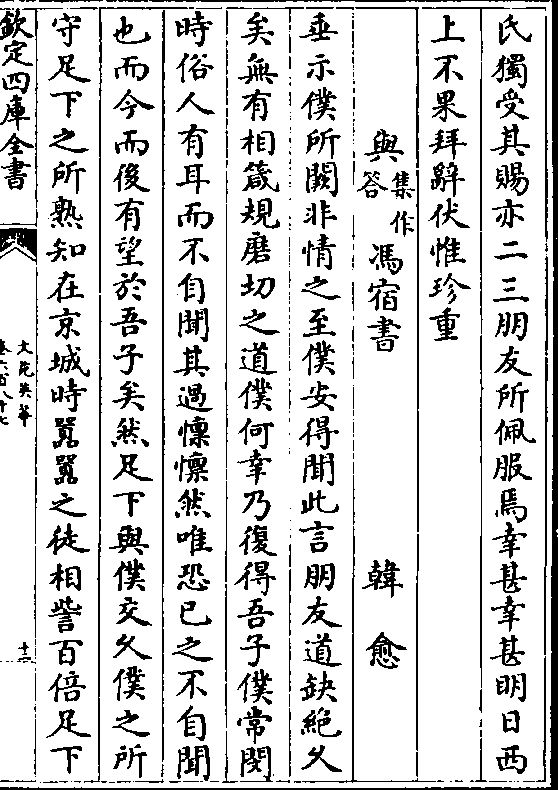 氏獨受其賜亦二三朋友所佩服焉幸甚幸甚明日西
上不果拜辭伏惟珍重
與集作答馮宿書　韓愈
垂示僕所闕非情之至僕安得聞此言朋友道缺絶久
矣無有相箴規磨切之道僕何幸乃復得吾子僕常閔
時俗人有耳而不自聞其過懍懍然唯恐已之不自聞
也而今而後有望於吾子矣然足下與僕交久僕之所
守足下之所熟知在京城時囂囂之徒相訾百倍足下
欽定四庫全書
文苑英華
卷六百八十七
十二